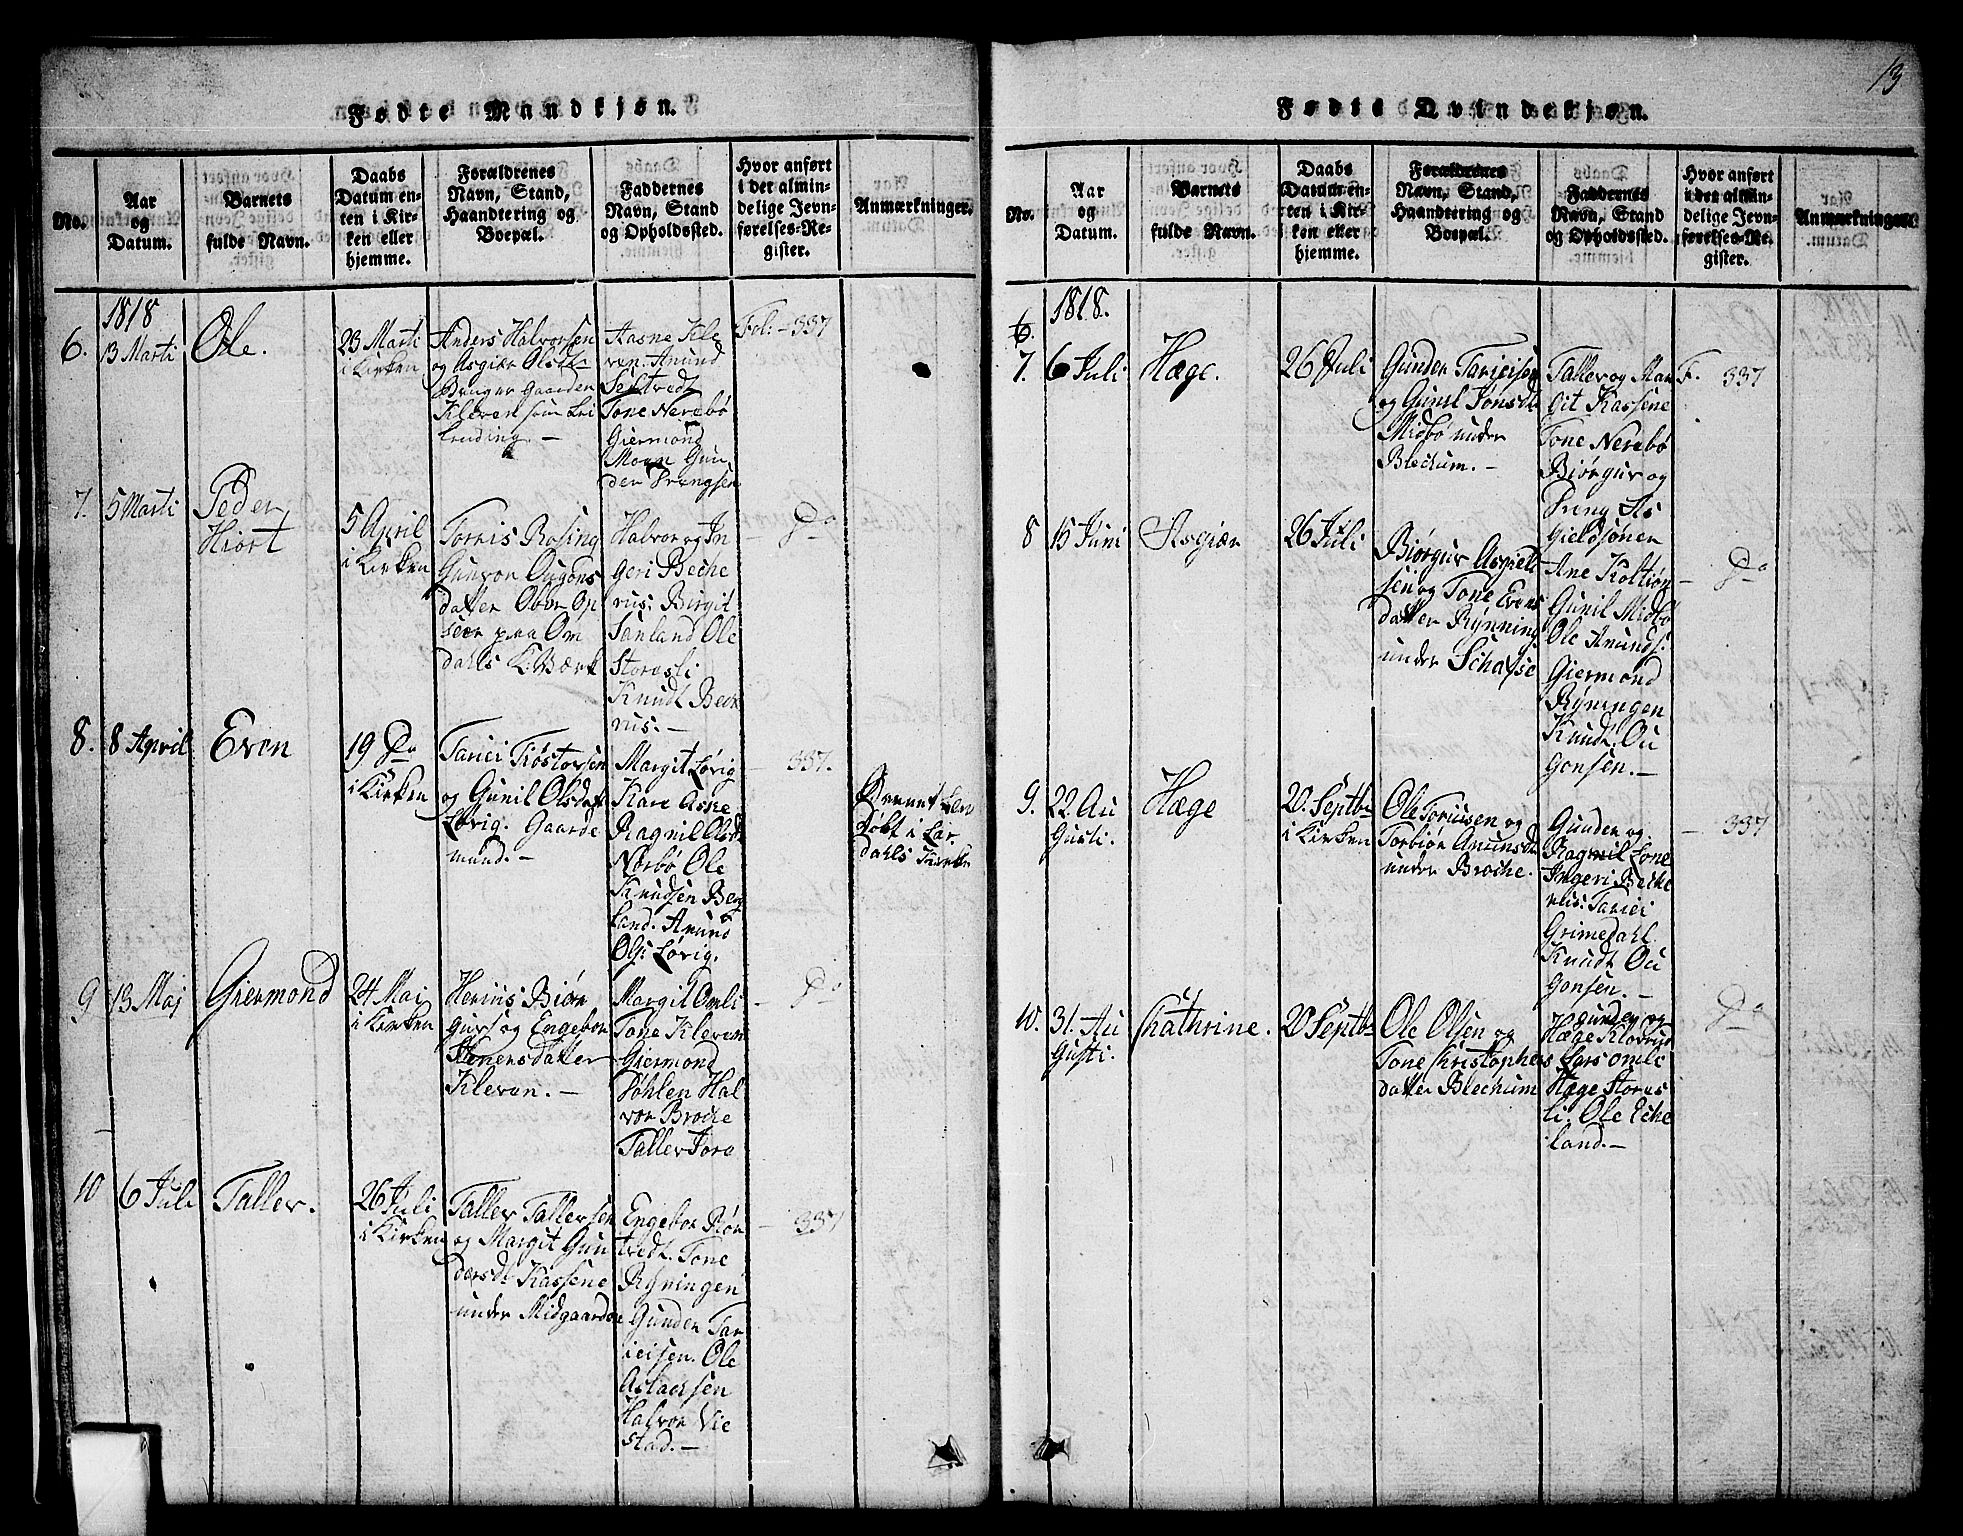 13
Fødte Mandkjøn.
No.
Aar
og
Datum.
Barnets
fulde Navn.
Daabs
Datum en-
ten i Kir-
ken eller
hjemme.
Forældrenes
Navn, Stand,
Haandtering og
Boepæl.
Faddernes
Navn, Stand
og Opholdssted.
Hvor anført
i det almin-
delige Jevn-
førelses-Re-
gister.
Anmærkninger.
1818
6.
13 Marti
Ole.
23 Marti
i Kirken
Anders Halvorsen
og Asgier Olsdt-
Bruger Gaarden
Kleven som Lei
lending. -
Aasne Kle
ven. Anund
Seltvedt
Tone Nerebø
Giermond
Moen Gun
der Prengsen
Fol: - 337
7.
5 Marti
Peder
Hiort
5 April
i Kirken
Tornis Rosing
Gunvor Ougons
datter Ober Op
seer paa Om
dahls K: Værk
Halvor og In
geri Beche
rus: Birgit
Sanland Ole
Storesli
Knudt Bech
rus. -
- Do
8.
8 April
Even
19 Do
i Kirken
Tariei Tiøstovsen
og Gunil Olsdatt
Løvig. Gaarde
mand. -
Margit Løvig
Kare Aske
Ragnil Olsdt
Nørbø Ole
Knudsen Berg
land. Anund
Ols: Løvig.
- 337.
døbt i Lar
dahls Kirke
9
13 Maj
Giermond
24 Mai
i Kirken
Herius Biør
gufs og Engebor
Stenersdatter
Kleven. -
Margit Omli
Tone Kleven
Giermond
Bøhlen Hal
vor Broche
Tallev Joro
- Do
10
6 Juli
Tallev.
26 Juli
i Kirken
Tallev Tallevsen
og Margit Gun
dersdt Kassene
under Midgaarden
Engebor Biør
tvedt. Tone
Ryningen
Gunder Tar
ieisen. Ole
Aslachsen
Halvor Vie
stad. -
- 337
Fødte Qvindekjøn.
No.
Aar
og
Datum.
Barnets
fulde Navn.
Daabs
Datum en-
ten i Kir-
ken eller
hjemme.
Forældrenes
Navn, Stand,
Haandtering og
Boepæl.
Faddernes
Navn, Stand
og Opholdssted.
Hvor anført
i det almin-
delige Jevn-
førelses-Re-
gister.
Anmærkninger.
1818.
6.
7.
6 Juli
Hæge.
26 Juli
Gunder Tarieisen
og Gunil Jonsdt
Midbø under
Blechum. -
Tallev og Mar
git Kassene
Tone Nerebø
Biørgus og
Preng As
gielsønen
F. 337
8
15 Juni
Asgiær
26 Juli
Biørgus Asgiels
sen og Tone Evens
datter Rynning
under Schafse
Ane Koltiøn
Gunil Midbø
Ole Anunds:
Giermond
Ryningen
Knudt Ou
gonsen. -
- Do
9.
22. Au
Gusti.
Hæge
20. Septbr
i Kirken
Ole Toriusen og
Torbiør Anundsdt
under Broche.
Gunder og
Ragnil Lone
Ingeri Beche
rus: Tariei
Grimedahl
Knudt Ou
gonsen. -
- 337
10.
31. Au
Gusti.
Chathrine.
20 Septbr
Ole Olsen og
Tone Christophers
datter Blechum
Gunder og
Hæge Klovrud
Lars Omli
Hæge Stores
li. Ole Eche
land. -
Do